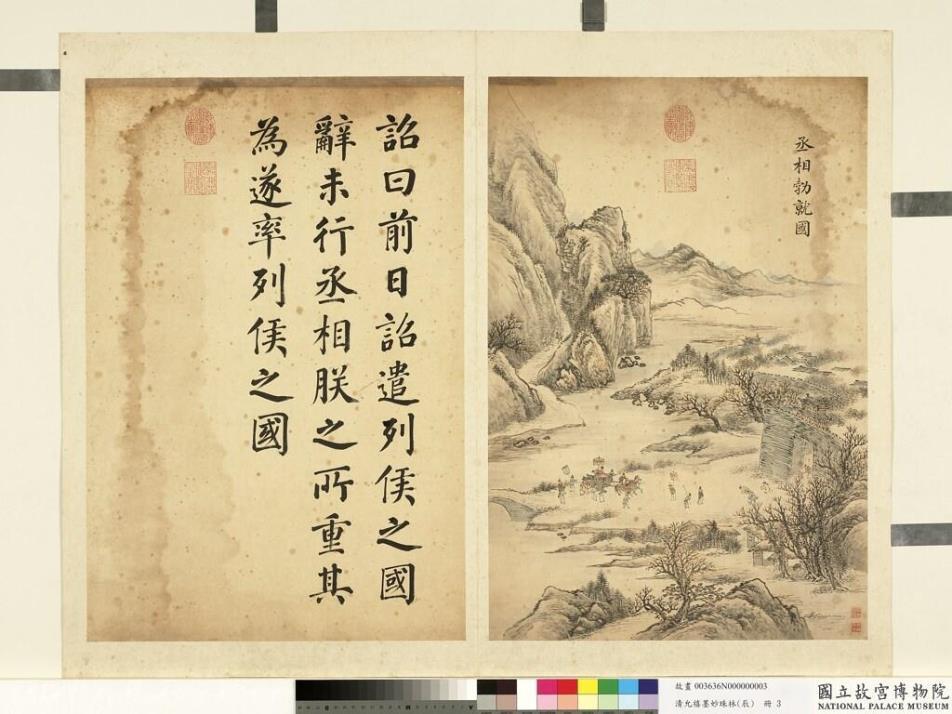 丞相勃就國
詔曰前日詔遣列侯之國
辭未行丞相朕之所重其
為遂率列侯之國
故畫 003636N000000003
清允禧墨妙珠林(辰) 冊 3
國立故宮博物院
NATIONAL PALACE MUSEUM